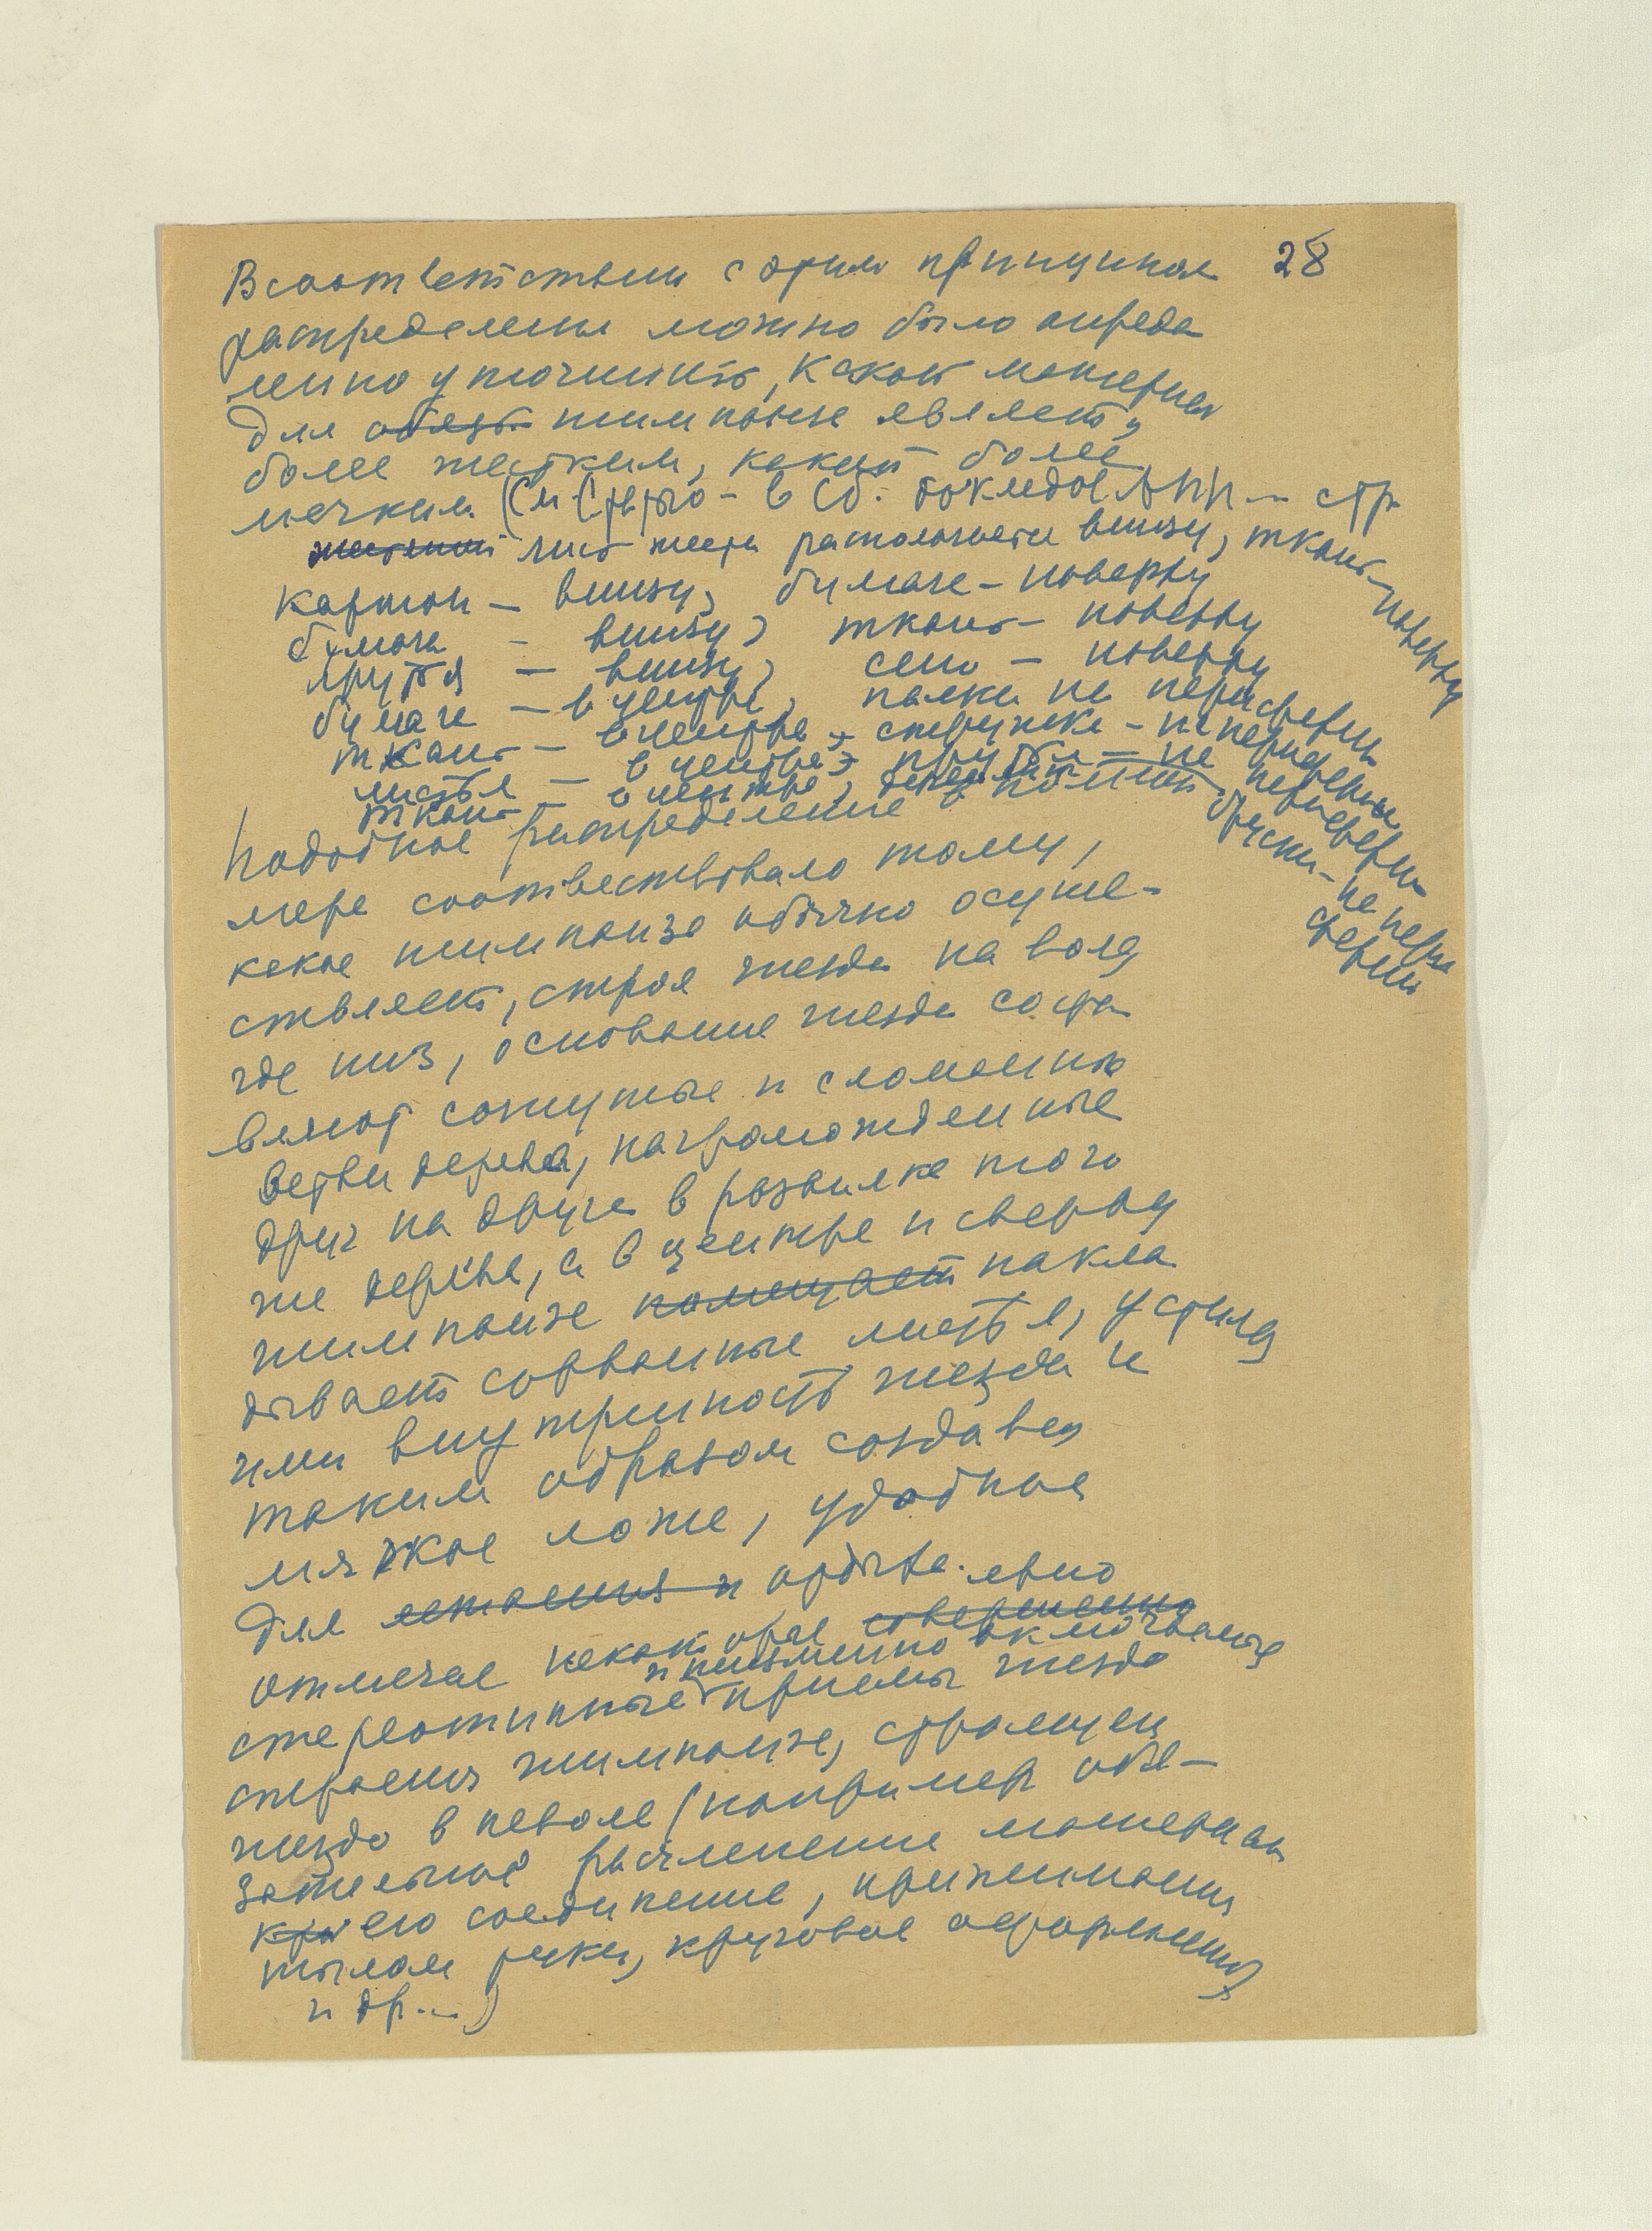 28
В соответствии с этим принципом
распределения можно было опреде
ленно уточнить, какой материал
для обезь шимпанзе является
более жестким, какой более
мягким (См Статью - в Сб. докладов АПН - стр
жестяной лист жести располагается внизу, ткань - поверху
картон - внизу, бумага - поверху
бумага - внизу, ткань - поверху
прутья - внизу, сено - поверху
бумага - в центре, палки на периферии
ткань - в центре, стружки - на периферии
листья - в центре, прутья - на периферии
ткань - в центре, бруски - на периферии
Подобное распределение в полной
мере соответствовало тому,
какое шимпанзе обычно осуще-
ствляет, строя гнезда на воле,
где низ, основание гнезда соста
вляют согнутые и сломанные
ветви дерева, нагроможденные
друг на друга в развилке того
же дерева, а в центре и сверху
шимпанзе помещает накла
дывает сорванные листья, устилая
ими внутренность гнезда и
таким образом создавая
мягкое ложе, удобное
для лежания и
отмечае некоторые совершенно
стереотипные и неизменно включаемые приемы гнездо
строения шимпанзе, строящей
гнездо в неволе (например обя-
зательное расчленение материала
кру его соединение, прижимание
тылом руки, круговое оформление
и др...)